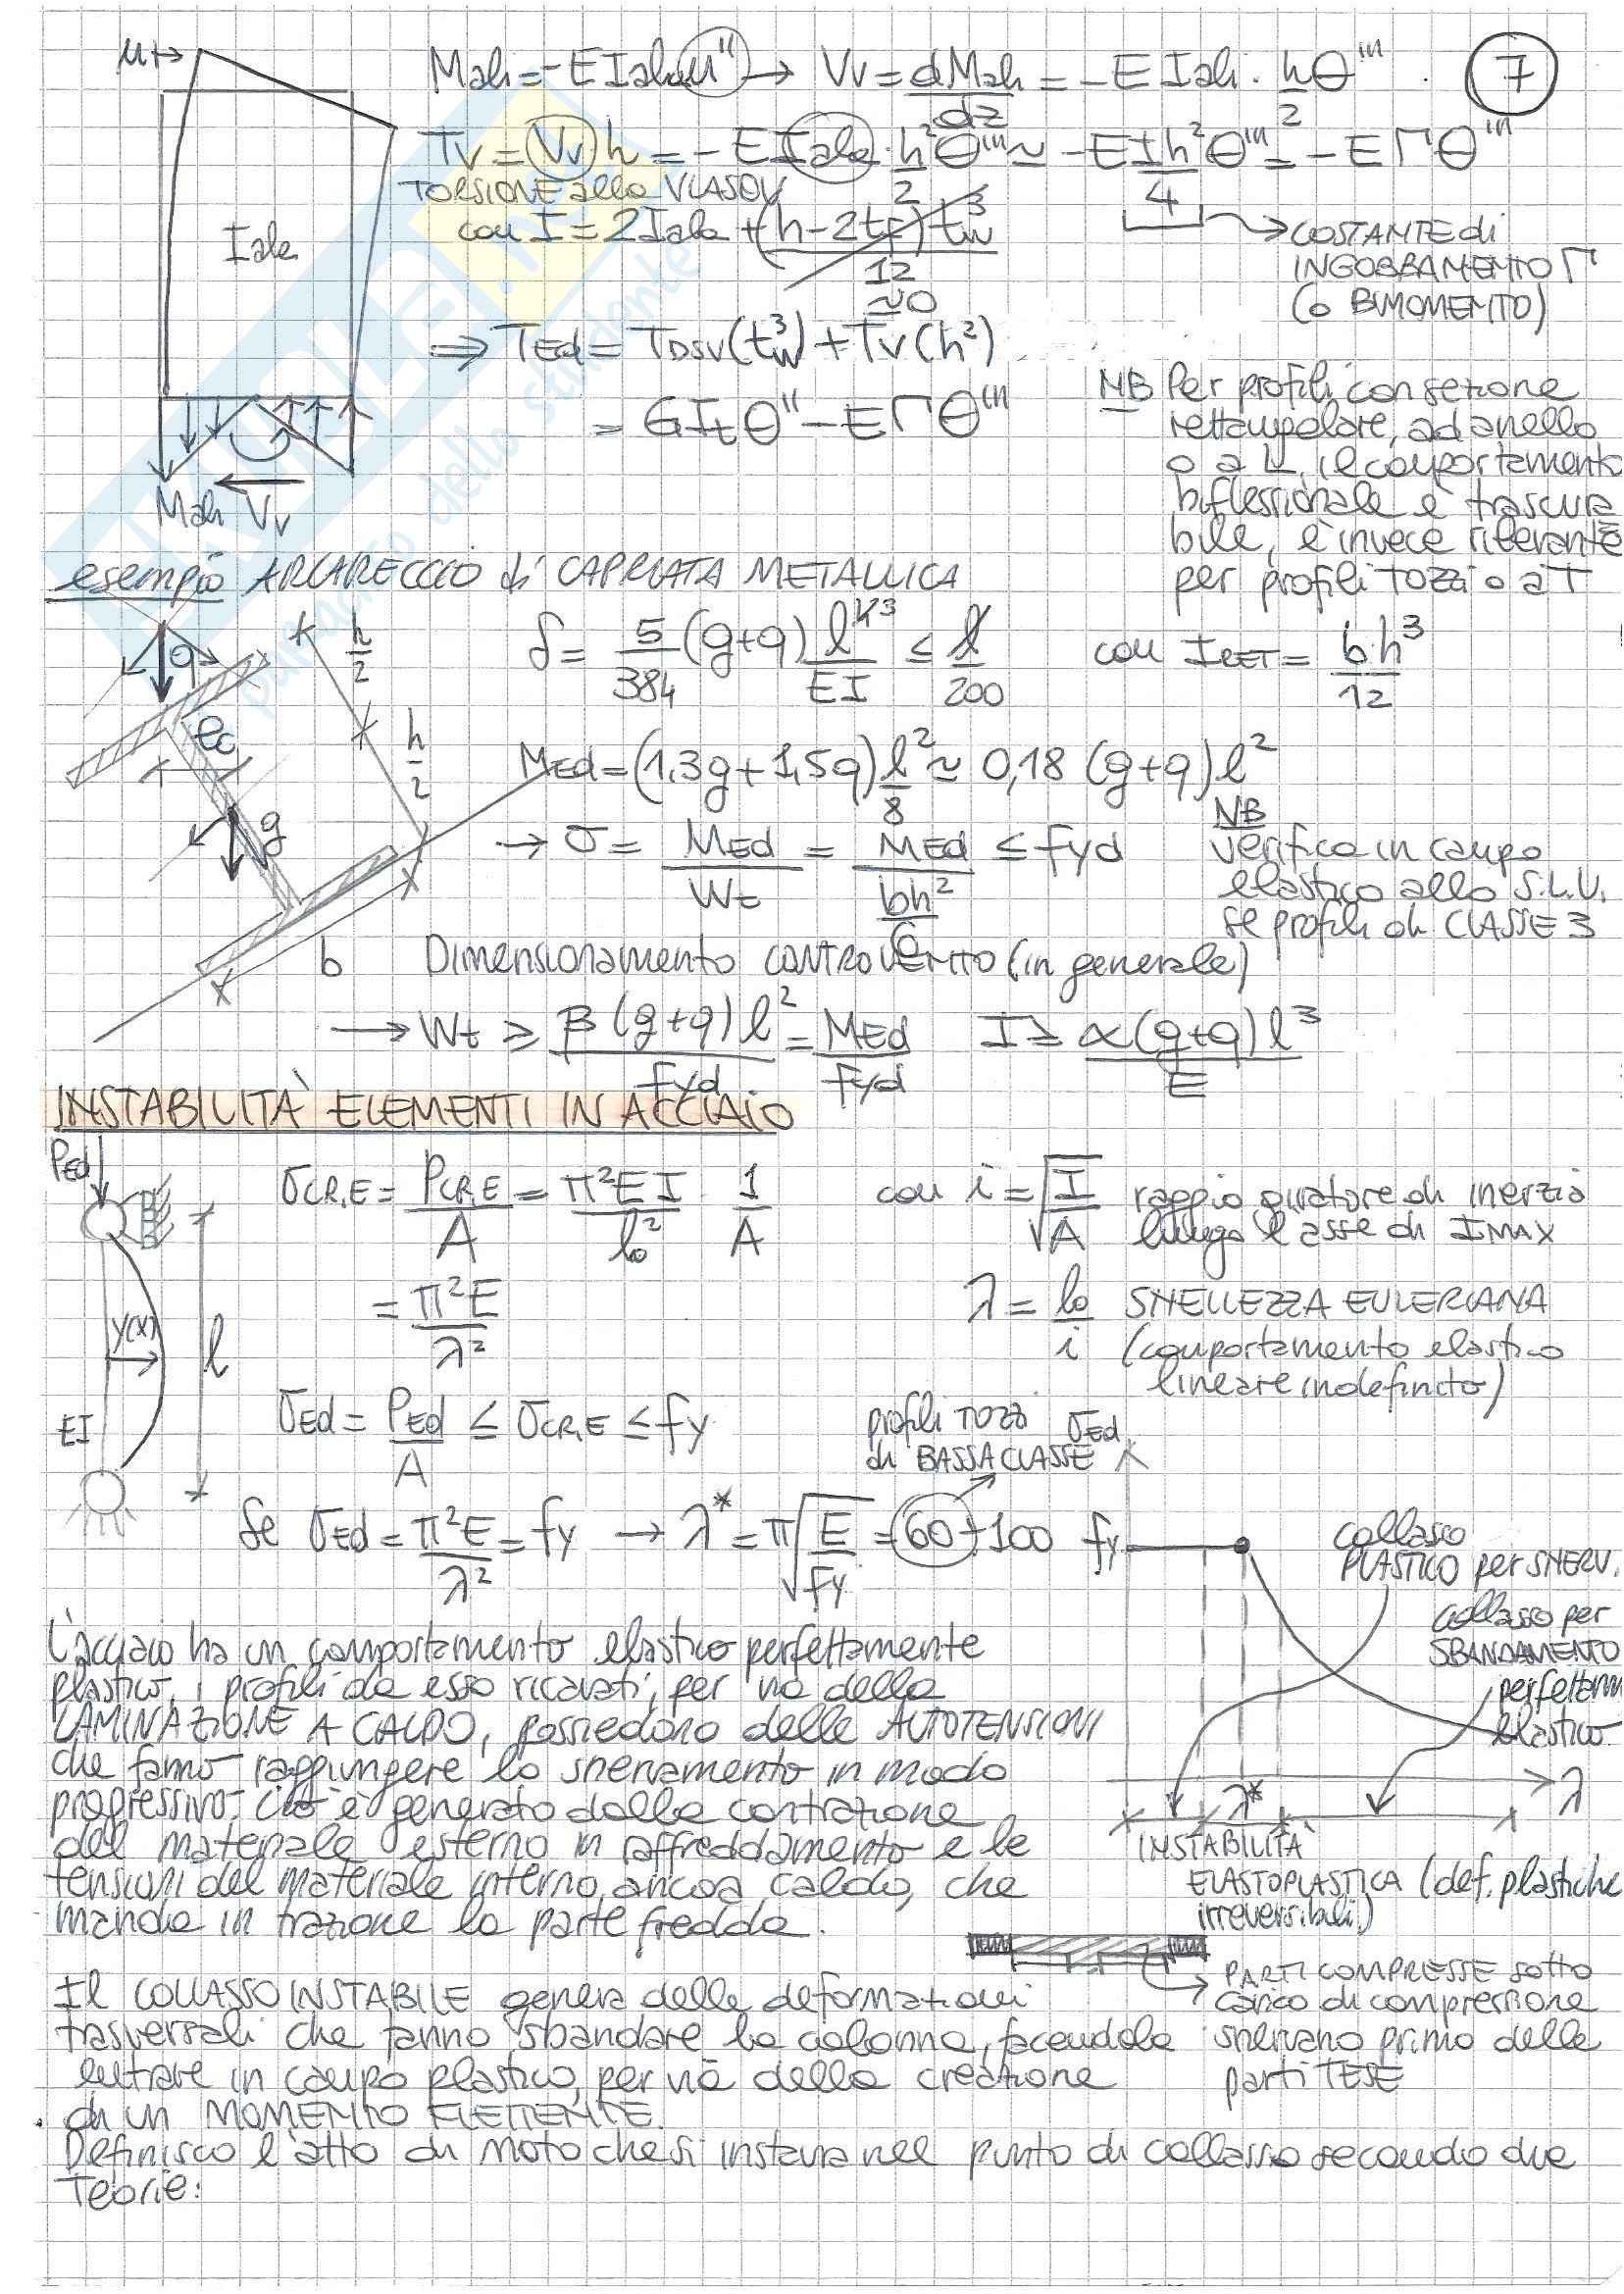 u ↦
Mala = -EIala u'' → Vv = dMala/dz = -EIala · h/2 θ''' .
7
Tv = Vv h = -EIala · h²/2 θ''' ≃ -EIh²/4 θ''' = -EΓθ'''
TORSIONE alla VLASOV
con I = 2Iala + (h-2tf)tw³/12 ≃0
COSTANTE di
INGOBBAMENTO Γ
(o BIMOMENTO)
Iala
⇒ TEd = TDSV(tw³) + Tv(h²)
= GItθ'' - EΓθ'''
NB Per profili con sezione
rettangolare, ad anello
o a L, il comportamento
biflessionale è trascura
bile, è invece rilevante
per profili TOZZI o a T
Mala Vv
esempio ARCARECCIO di CAPRIATA METALLICA
q
h/2
h/2
ec
g
b
δ = 5/384 (g+q) l⁴ ³/EI ≤ l/200
con IRET = b·h³/12
MEd = (1,3g+1,5q) l²/8 ≃ 0,18 (g+q) l²
→ σ = MEd/Wt = MEd/(bh²/6) ≤ fyd
NB
verifica in campo
elastico allo S.L.U.
se profili di CLASSE 3
Dimensionamento CONTROVENTO (in generale)
→ Wt ≥ β(g+q)l²/fyd = MEd/fyd I ≥ α(g+q)l³/E
INSTABILITÀ ELEMENTI IN ACCIAIO
PEd
y(x)
l
EI
σCR,E = PCR,E/A = π²EI/l₀² 1/A
con i = √I/A raggio giratore di inerzia
lungo l'asse di IMAX
= π²E/λ²
λ = l₀/i SNELLEZZA EULERIANA
(comportamento elastico
lineare indefinito)
σEd = PEd/A ≤ σCR,E ≤ fy
profili TOZZI
di BASSA CLASSE
σEd
Se σEd = π²E/λ² = fy → λ* = π√E/fy = 60÷100
fy
collasso
PLASTICO per SNERV.
collasso per
SBANDAMENTO
perfettam
elastico
λ
λ*
INSTABILITÀ
ELASTOPLASTICA (def. plastiche
irreversibili)
L'acciaio ha un comportamento elastico perfettamente
plastico, i profili da esso ricavati, per via della
LAMINAZIONE A CALDO, possiedono delle AUTOTENSIONI
che fanno raggiungere lo snervamento in modo
progressivo. Ciò è generato dalla contrazione
del materiale esterno in raffreddamento e le
tensioni del materiale interno, ancora caldo, che
manda in trazione la parte fredda.
PARTI COMPRESSE sotto
carico di compressione
snervano prima delle
parti TESE
Il COLLASSO INSTABILE genera delle deformazioni
trasversali che fanno sbandare la colonna, facendola
entrare in campo plastico, per via della creazione
di un MOMENTO FLETTENTE.
Definisco l'atto di moto che si instaura nel punto di collasso secondo due
Teorie: